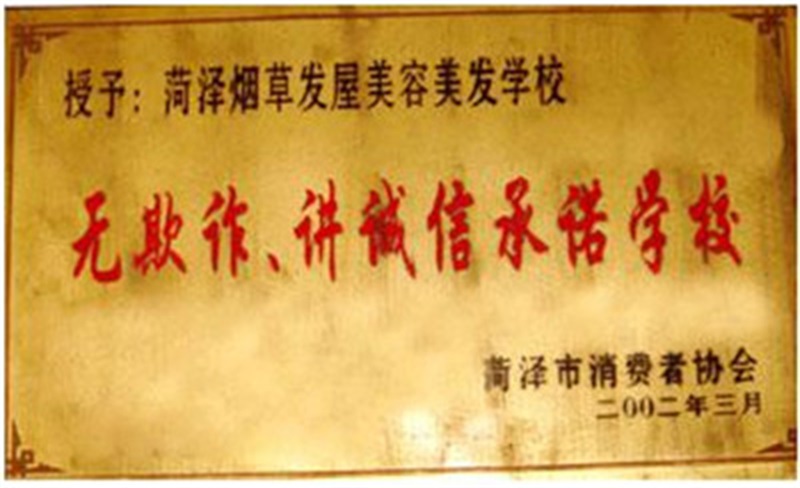 授予：菏泽烟草发屋美容美发学校
无欺诈、讲诚信承诺学校
菏泽市消费者协会
二00二年三月